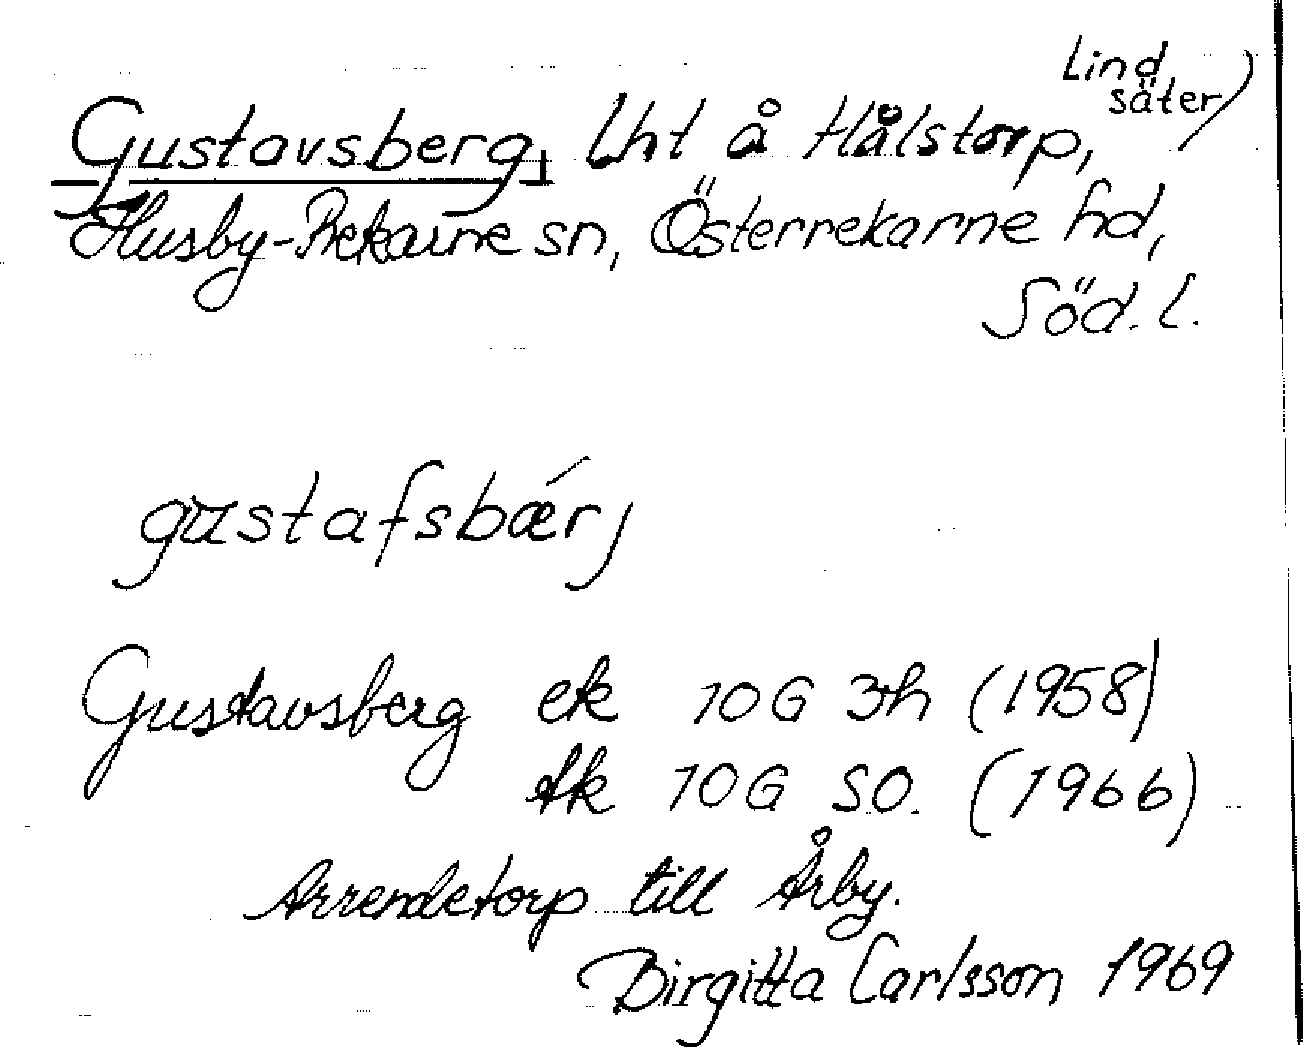 Gustavsberg, Lht å Hålstorp, Lindsäter)
Husby-Rekarne sn, Österrekarne hd,
Söd. l.
gustafsbǽrj
Gustavsberg ek 10G 3h (1958)
tk 10G SO. (1966)
Arrendetorp till Årby.
Birgitta Carlsson 1969